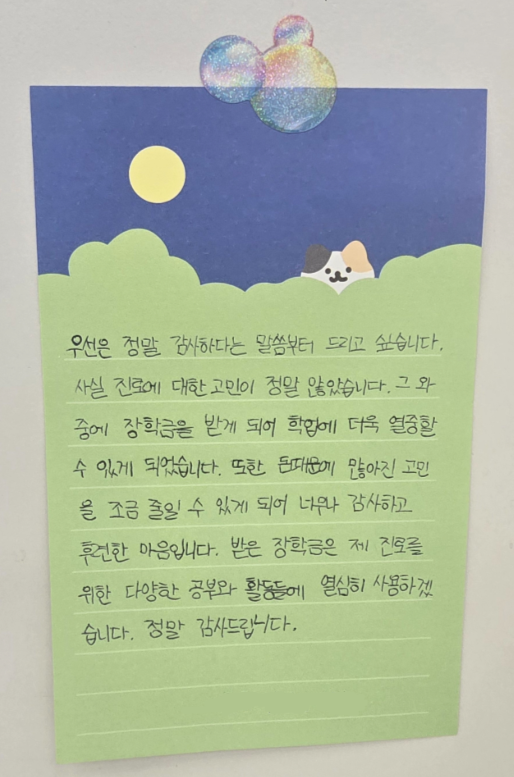 우선은 정말 감사하다는 말씀부터 드리고 싶습니다.
사실 진로에 대한 고민이 정말 많았습니다. 그 와
중에 장학금을 받게 되어 학업에 더욱 열중할
수 있게 되었습니다. 또한 돈때문에 많아진 고민
을 조금 줄일 수 있게 되어 너무나 감사하고
후련한 마음입니다. 받은 장학금은 제 진로를
위한 다양한 공부와 활동들에 열심히 사용하겠
습니다. 정말 감사드립니다.